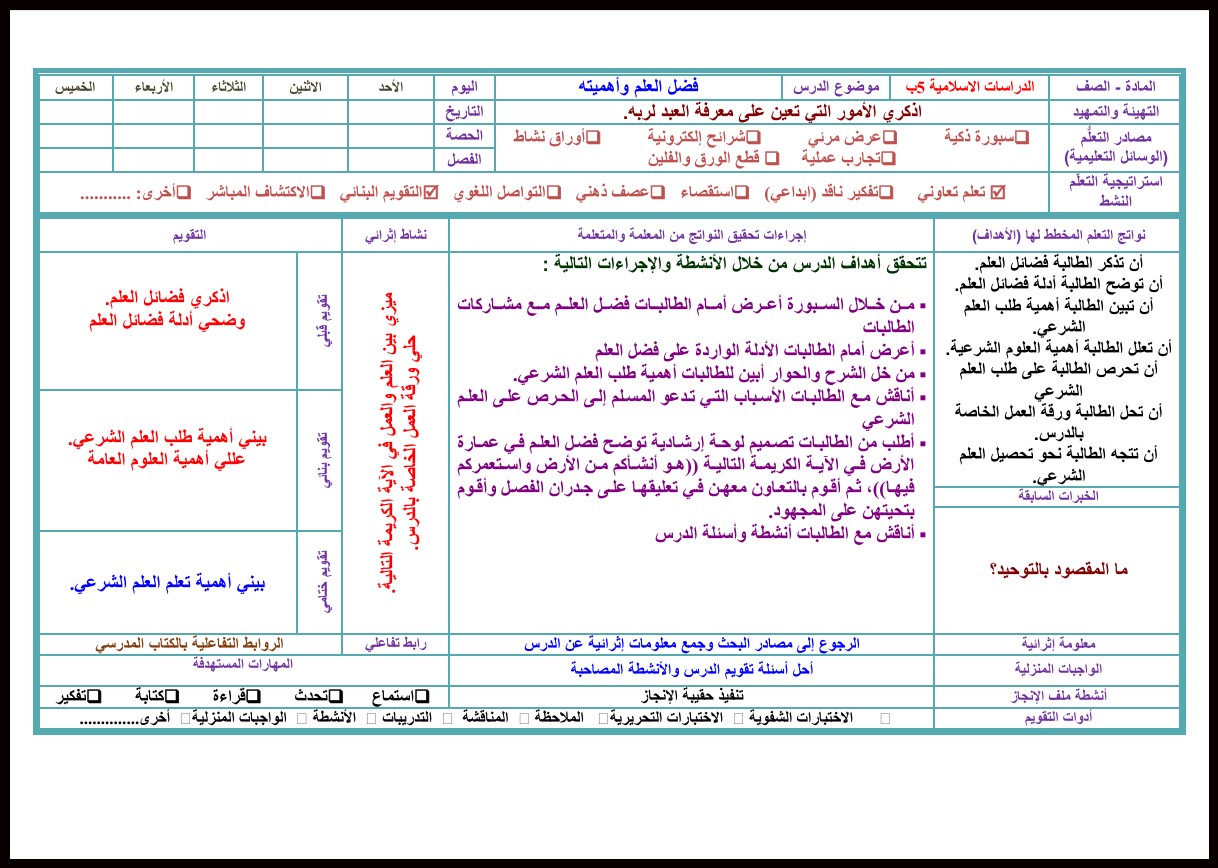 المادة - الصف الدراسات الاسلامية 5ب موضوع الدرس فضل العلم وأهميته اليوم الأحد الاثنين الثلاثاء الأربعاء الخميس
التهيئة والتمهيد اذكري الأمور التي تعين على معرفة العبد لربه. التاريخ
مصادر التعلُّم ❑سبورة ذكية ❑عرض مرئي ❑شرائح إلكترونية ❑أوراق نشاط الحصة
(الوسائل التعليمية) ❑تجارب عملية ❑ قطع الورق والفلين الفصل
استراتيجية التعلّم
النشط
☑ تعلم تعاوني ❑تفكير ناقد (ابداعي) ❑استقصاء ❑عصف ذهني ❑التواصل اللغوي ☑التقويم البنائي ❑الاكتشاف المباشر ❑أخرى: ...........
نواتج التعلم المخطط لها (الأهداف) إجراءات تحقيق النواتج من المعلمة والمتعلمة نشاط إثرائي التقويم
أن تذكر الطالبة فضائل العلم.
أن توضح الطالبة أدلة فضائل العلم.
أن تبين الطالبة أهمية طلب العلم
الشرعي.
أن تعلل الطالبة أهمية العلوم الشرعية.
أن تحرص الطالبة على طلب العلم
الشرعي
أن تحل الطالبة ورقة العمل الخاصة
بالدرس.
أن تتجه الطالبة نحو تحصيل العلم
الشرعي.
الخبرات السابقة
ما المقصود بالتوحيد؟
تتحقق أهداف الدرس من خلال الأنشطة والإجراءات التالية :
▪ من خلال السبورة أعرض أمام الطالبات فضل العلم مع مشاركات
الطالبات
▪ أعرض أمام الطالبات الأدلة الواردة على فضل العلم
▪ من خل الشرح والحوار أبين للطالبات أهمية طلب العلم الشرعي.
▪ أناقش مع الطالبات الأسباب التي تدعو المسلم إلى الحرص على العلم
الشرعي
▪ أطلب من الطالبات تصميم لوحة إرشادية توضح فضل العلم في عمارة
الأرض في الآية الكريمة التالية ((هو أنشأكم من الأرض واستعمركم
فيها))، ثم أقوم بالتعاون معهن في تعليقها على جدران الفصل وأقوم
بتحيتهن على المجهود.
▪ أناقش مع الطالبات أنشطة وأسئلة الدرس
ميزي بين العلم والعمل في الآية الكريمة التالية.
حلي ورقة العمل الخاصة بالدرس.
تقويم قبلي
اذكري فضائل العلم.
وضحي أدلة فضائل العلم
تقويم بنائي
بيني أهمية طلب العلم الشرعي.
عللي أهمية العلوم العامة
تقويم ختامي
بيني أهمية تعلم العلم الشرعي.
معلومة إثرائية الرجوع إلى مصادر البحث وجمع معلومات إثرائية عن الدرس رابط تفاعلي الروابط التفاعلية بالكتاب المدرسي
الواجبات المنزلية أحل أسئلة تقويم الدرس والأنشطة المصاحبة المهارات المستهدفة
أنشطة ملف الإنجاز تنفيذ حقيبة الإنجاز ❑استماع ❑تحدث ❑قراءة ❑كتابة ❑تفكير
أدوات التقويم □ الاختبارات الشفوية □ الاختبارات التحريرية □ الملاحظة □ المناقشة □ التدريبات □ الأنشطة □ الواجبات المنزلية □ أخرى..............